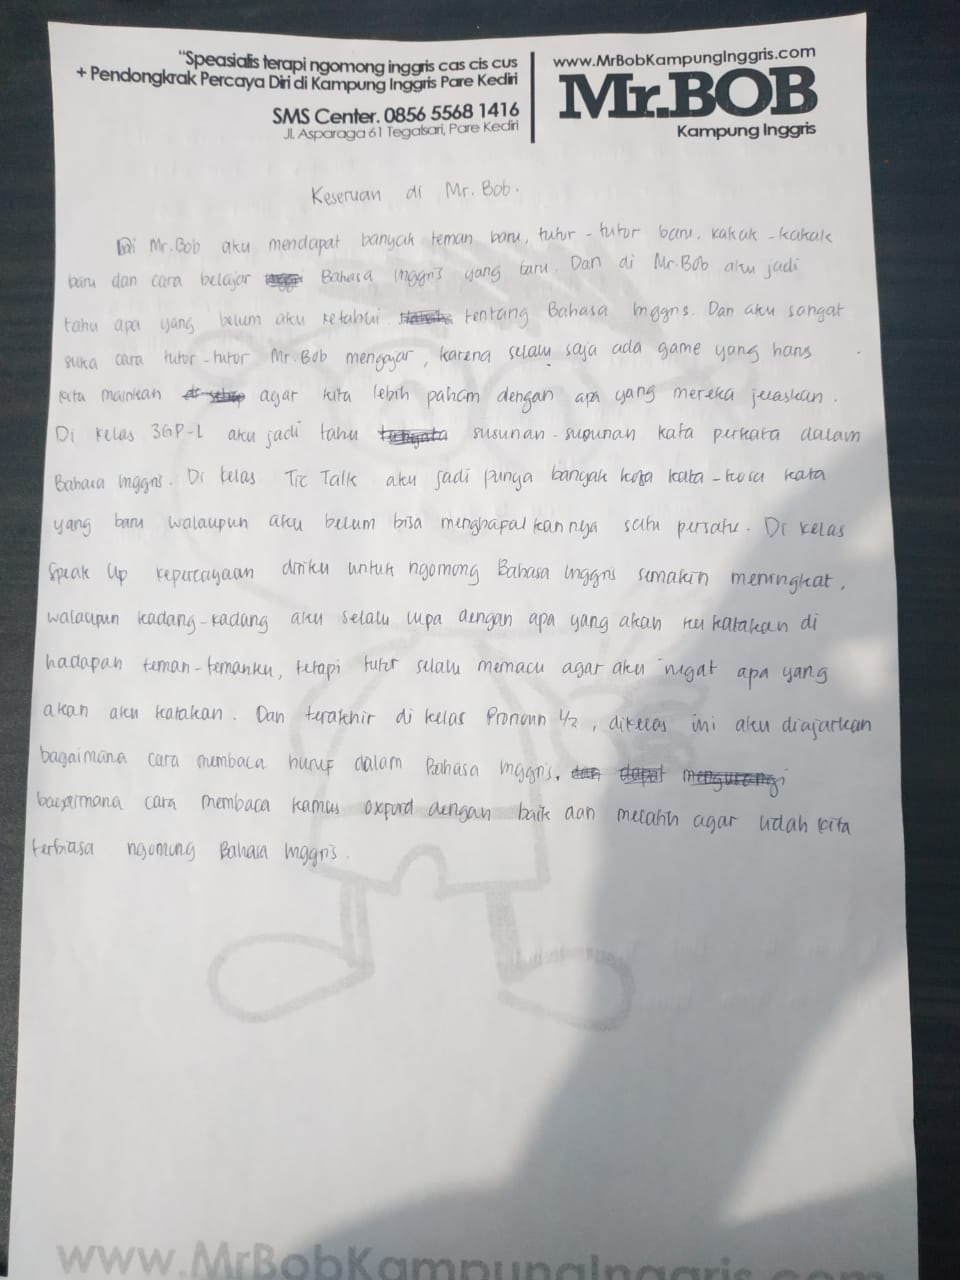 "Speasialis terapi ngomong inggris cas cis cus
+ Pendongkrak Percaya Diri di Kampung Inggris Pare Kediri
SMS Center. 0856 5568 1416
Jl. Asparaga 61 Tegalsari, Pare Kediri
www.MrBobKampungInggris.com
Mr.BOB
Kampung Inggris
Keseruan di Mr. Bob.
Di Mr.Bob aku mendapat banyak teman baru, tutor-tutor baru, kakak-kakak
baru dan cara belajar Bahasa Inggris yang baru. Dan di Mr.Bob aku jadi
tahu apa yang belum aku ketahui tentang Bahasa Inggris. Dan aku sangat
suka cara tutor-tutor Mr.Bob mengajar, karena selalu saja ada game yang harus
kita mainkan agar kita lebih paham dengan apa yang mereka jelaskan.
Di kelas 3GP-L aku jadi tahu susunan-susunan kata perkata dalam
Bahasa Inggris. Di kelas Tic Talk aku jadi punya banyak kosa kata-kosa kata
yang baru walaupun aku belum bisa menghapalkannya satu persatu. Di kelas
Speak Up kepercayaan diriku untuk ngomong Bahasa Inggris semakin meningkat,
walaupun kadang-kadang aku selalu lupa dengan apa yang akan ku katakan di
hadapan teman-temanku, tetapi tutor selalu memacu agar aku ingat apa yang
akan aku katakan. Dan terakhir di kelas Pronoun 1/2, dikelas ini aku diajarkan
bagaimana cara membaca huruf dalam Bahasa Inggris,
bagaimana cara membaca kamus oxford dengan baik dan melatih agar lidah kita
terbiasa ngomong Bahasa Inggris.
www.MrBobKampungInggris.com